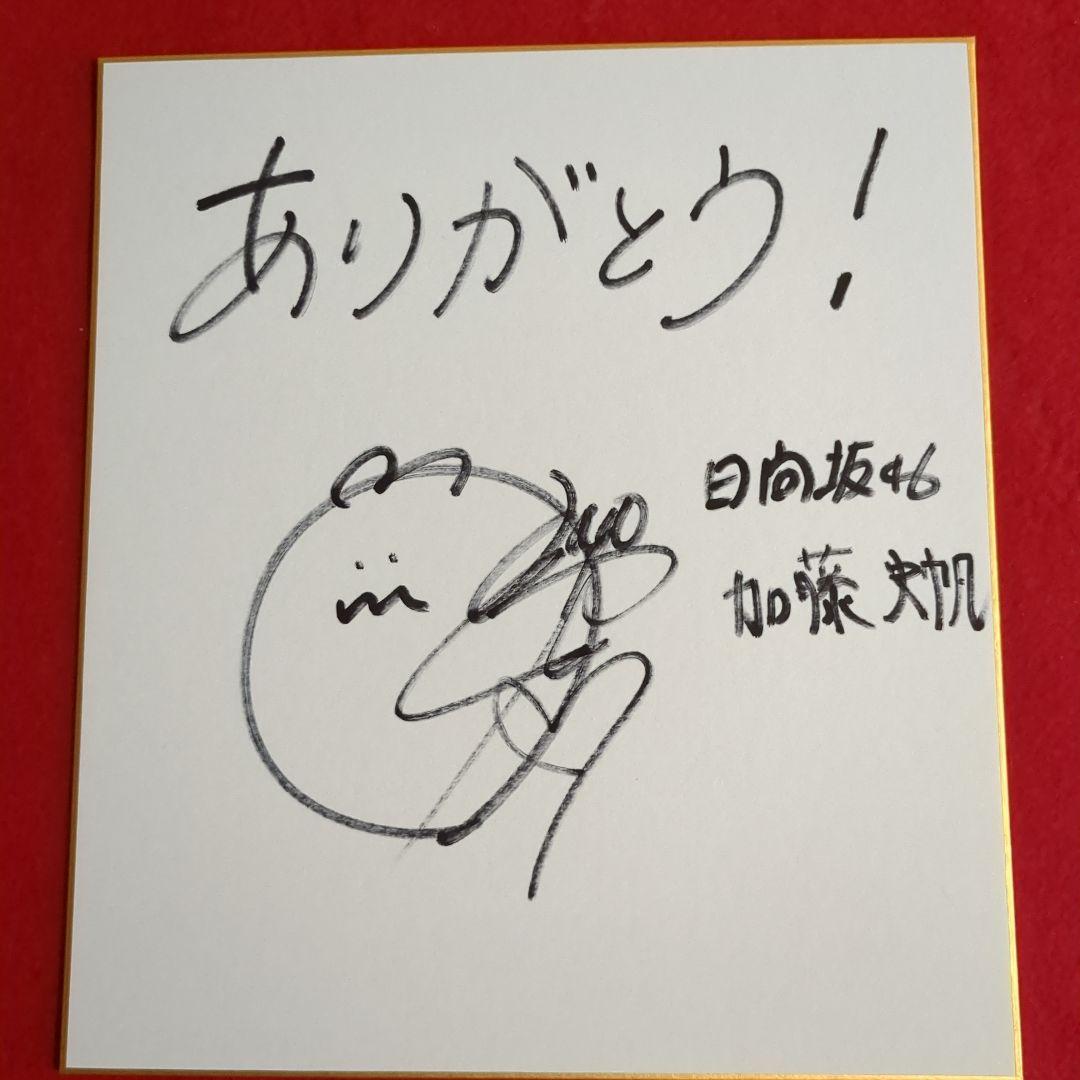 ありがとう!
日向坂46
加藤史帆